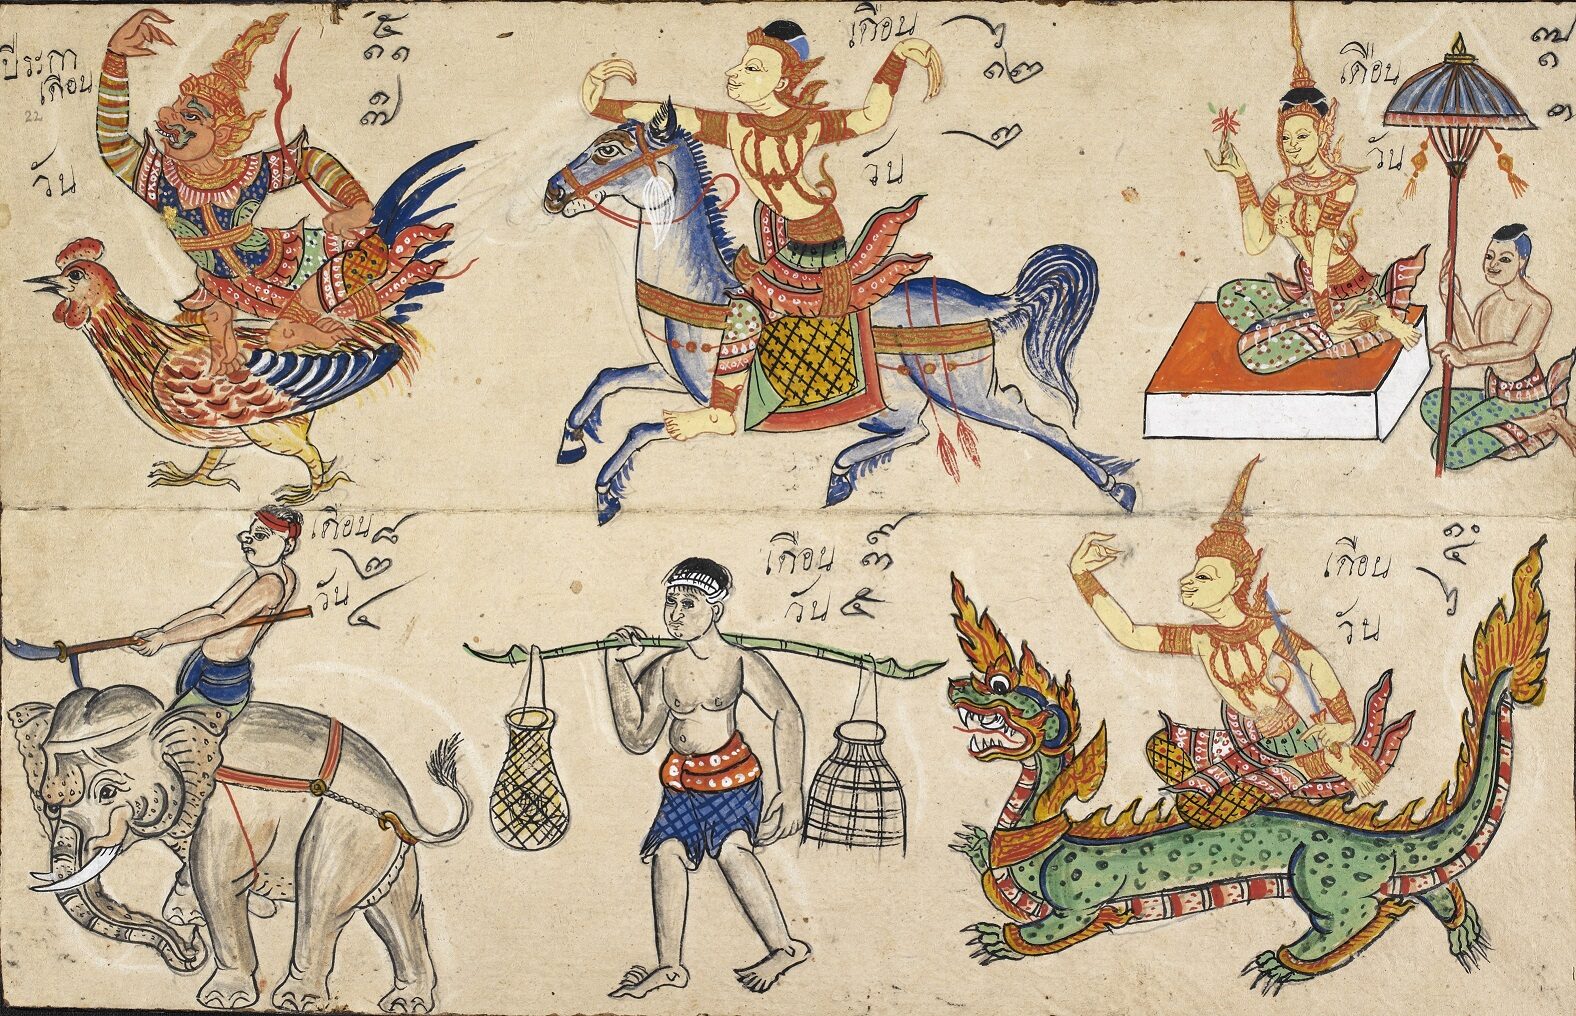 ปีระกา
เดือน
22
วัน
๕
๑๑
๑
๗
เดือน ๖
๑๒
วัน ๒
เดือน ๗
๑
วัน ๓
เดือน ๘
๒
วัน ๔
เดือน ๙
๓
วัน ๕
เดือน ๑๐
๔
วัน ๖